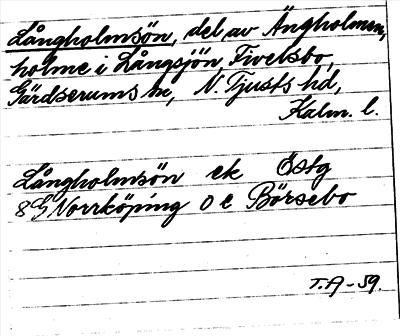 Långholmsön, del av Ängholmen,
holme i Långsjön, Fivelsbo,
Gärdserums sn, N. Tjusts hd,
Kalm. l.
Långholmsön ek Östg
8 G Norrköping o e Börsebo
T.A-59.